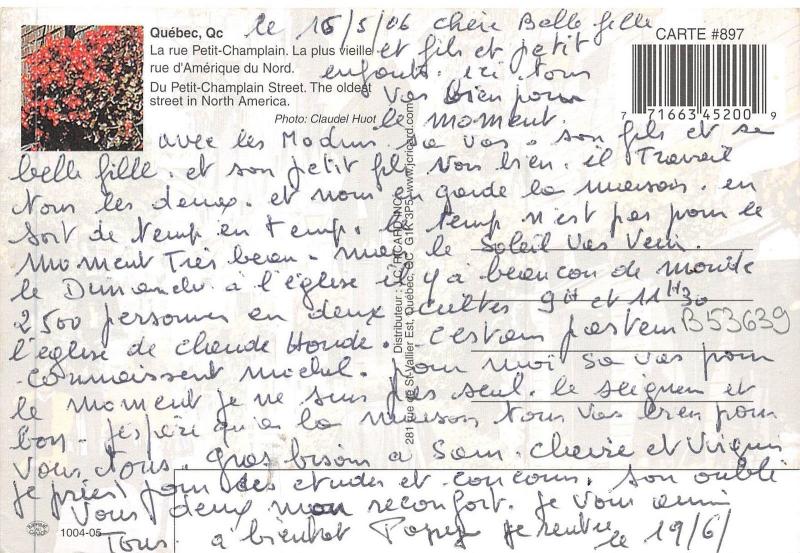 Québec, Qc
La rue Petit-Champlain. La plus vieille
rue d'Amérique du Nord.
Du Petit-Champlain Street. The oldest
street in North America.
Photo: Claudel Huot
CARTE #897
7 71663 45200 9
le 15/5/06 chère Belle fille
et fils et petit
enfants. ici tous
vas bien pour
le moment.
avec les sa vas. son fils et sa
belle fille. et son petit fils vous bien. il Travail
tous les deux. et nous en garde la maison. en
sort de temp en temp. le temp n'est pas pour le
moment Très beau. mais le Soleil vas venir.
le Dimanche à l'église il y a beaucou de monde
2500 personnes en deux cultes 9H et 11H30
l'église de claude Houde. c'est un pasteur
connaissent michel. pour moi sa vas pour
le moment je ne suis pas seul. le seigneur et
bon. j'espère qu'a la maison tous vas bien pour
vous tous. gros bisous a Sam. cherie et
je pries pour des etudes et concour. son oublié
vous deux mon reconfort. je vous aime
Tous. a bientot Papy je rentre le 19/6/
B53639
Distributeur : J.C. RICARD INC.
281 rue de St-Vallier Est, Québec, QC G1K 3P5 www.jcricard.com
1004-05